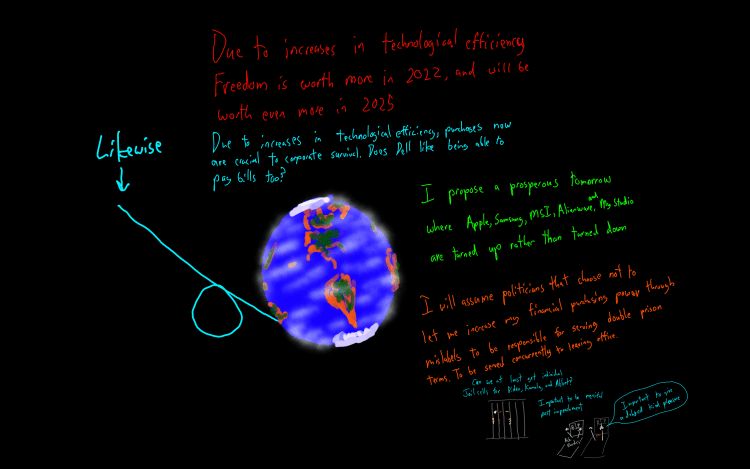 Due to increases in technological efficiency
Freedom is worth more in 2022, and will be
worth even more in 2025
Likewise
Due to increases in technological efficiency, purchases now
are crucial to corporate survival. Does Dell like being able to
pay bills too?
I propose a prosperous tomorrow
where Apple, Samsung, MSI, Alienware, and My Studio
are turned up rather than turned down
I will assume politicians that choose not to
let me increase my financial purchasing power through
mislabels to be responsible for serving double prison
terms. To be served concurrently to leaving office.
Can we at least get individual
Jail cells for Biden, Kamala, and Abbott?
Important to be merciful
post impeachment
Important to give
a kick please